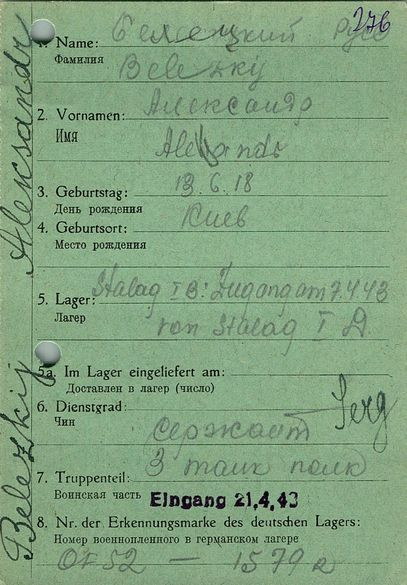 276
1. Name: Белецкий Русс
Фамилия
Belezkij
2. Vornamen: Александр
Имя
Alexandr
3. Geburtstag: 13.6.18
День рождения
4. Geburtsort: Киев
Место рождения
Stalag I B: Zugang am 7.4.43
5. Lager:
Лагер
von Stalag I A
5a. Im Lager eingeliefert am:
Доставлен в лагер (число)
6. Dienstgrad: Serg
Чин
Сержант
7. Truppenteil: 3 танк полк
Воинская часть Eingang 21,4,43
8. Nr. der Erkennungsmarke des deutschen Lagers:
Номер военнопленного в германском лагере
1579
Belezkij Aleksandr